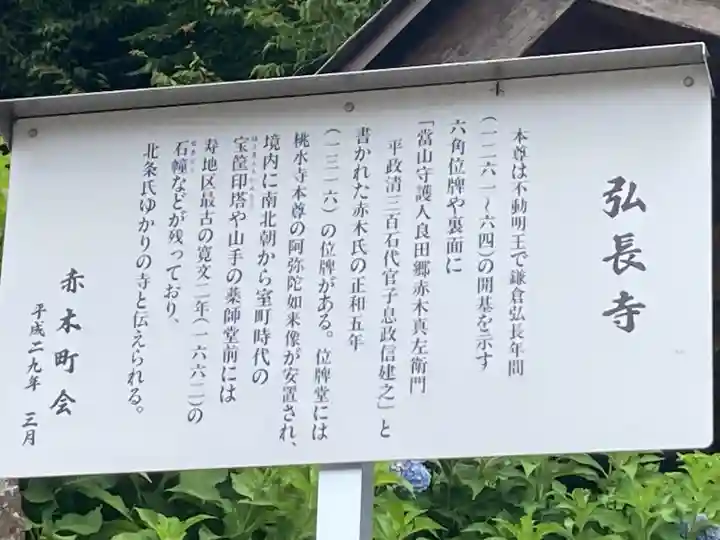 弘長寺
本尊は不動明王で鎌倉弘長年間
(一二六一~六四)の開基を示す
六角位牌や裏面に
「當山守護人良田郷赤木真左衛門
平政清三百石代官子息政信建之」と
書かれた赤木氏の正和五年
(一三一六)の位牌がある。位牌堂には
桃水寺本尊の阿弥陀如来像が安置され、
境内に南北朝から室町時代の
宝筐印塔や山手の薬師堂前には
寿地区最古の寛文二年(一六六二)の
石幢などが残っており、
北条氏ゆかりの寺と伝えられる。
赤木町会
平成二九年 三月